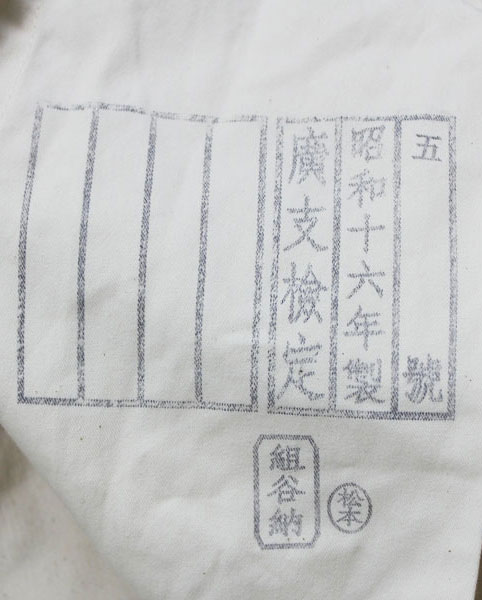 五號
昭和十六年製
廣支檢定
組谷納
松本